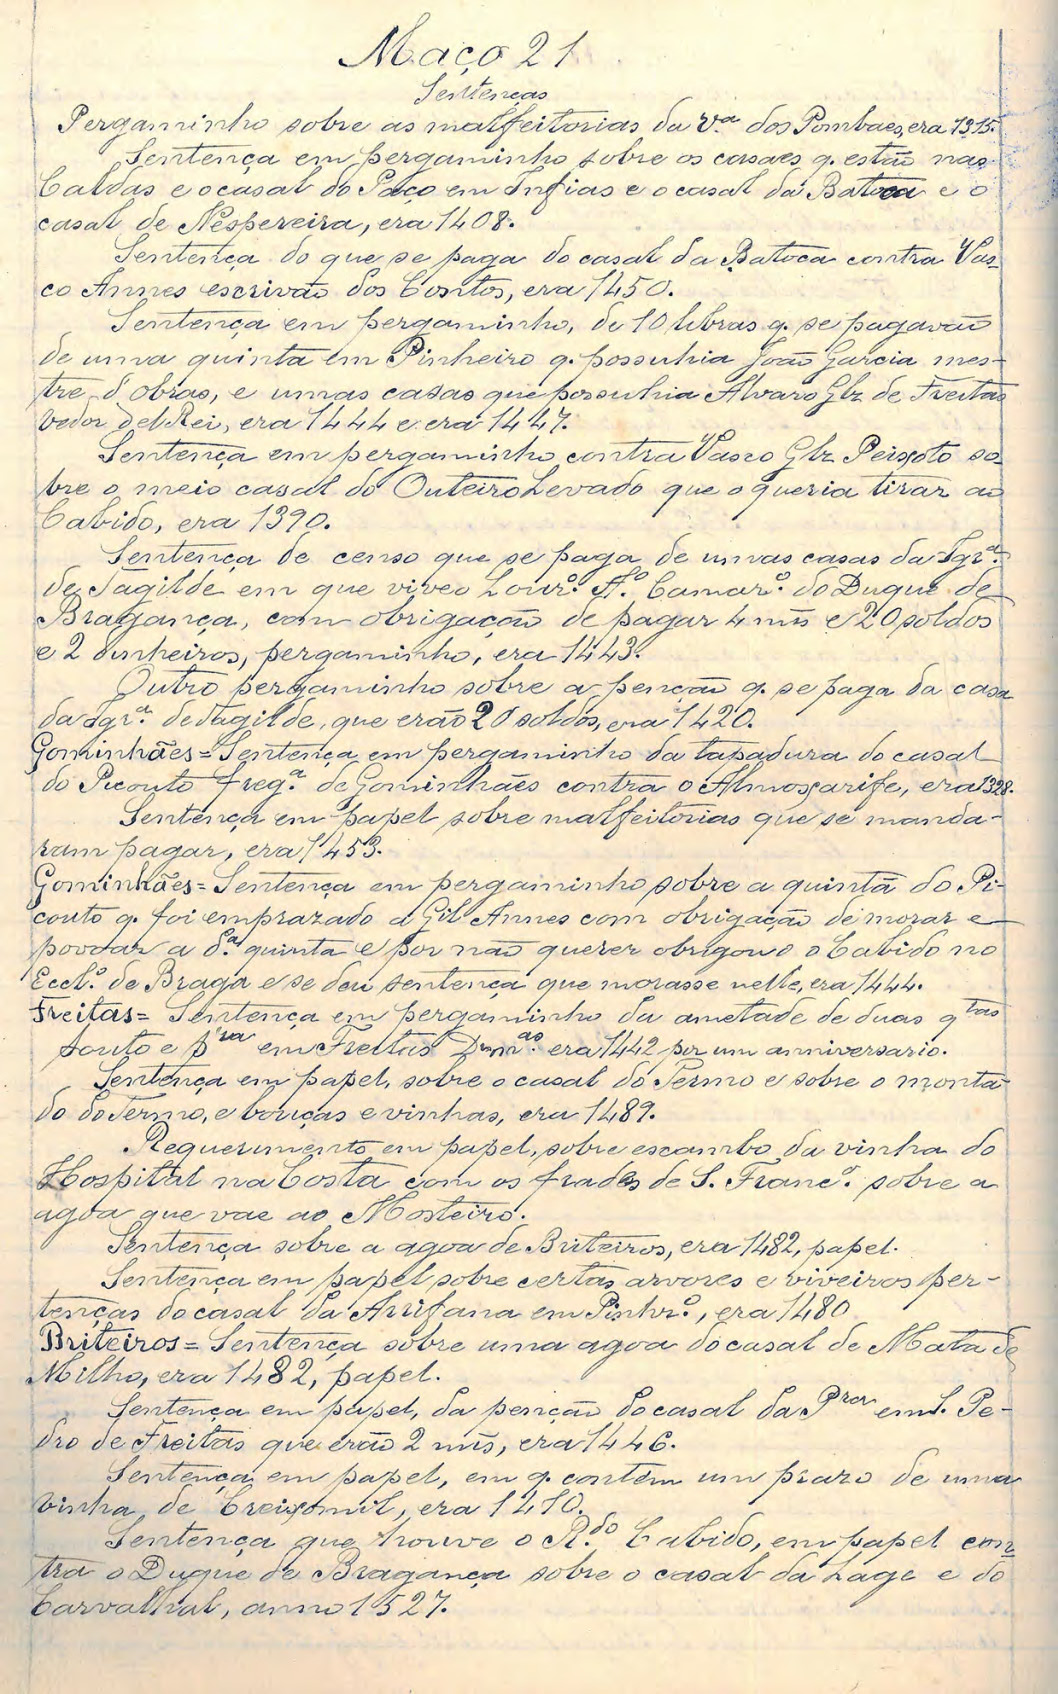 Maço 21
Sentenças
Pergaminho sobre as malfeitorias da v.ª dos Pombaes, era 1315.
Sentença em pergaminho sobre os casaes q. estão nas
Caldas e o casal do Paço em Infias e o casal da Batoca e o
casal de Nespereira, era 1408.
Sentença do que se paga do casal da Batoca contra Vas-
co Annes escrivão dos Contos, era 1450.
Sentença em pergaminho, de 10 libras q. se pagavão
de uma quinta em Pinheiro q. possuhia João Garcia mes-
tre d'obras, e umas casas que possuhia Alvaro Glz de Freitas
vedor del Rei, era 1444 e era 1447.
Sentença em pergaminho contra Vasco Glz Peixoto so-
bre o meio casal do Outeiro Levado que o queria tirar ao
Cabido, era 1390.
Sentença de censo que se paga de umas casas da Igr.ª
de Tagilde em que viveo Lour.º Aº. Camar.º do Duque de
Bragança, com obrigação de pagar 4 mrs e 20 soldos
e 2 dinheiros, pergaminho, era 1443.
Outro pergaminho sobre a penção q. se paga da casa
da Igr.ª de Tagilde, que erão 20 soldos, era 1420.
Gominhães = Sentença em pergaminho da tapadura do casal
do Picouto freg.ª de Gominhães contra o Almoxarife, era 1328.
Sentença em papel sobre malfeitorias que se manda-
ram pagar, era 1453.
Gominhães = Sentença em pergaminho sobre a quinta do Pi-
couto q. foi emprazado a Gil Annes com obrigação de morar e
povoar a d.ª quinta e por não querer obrigou-o o Cabido no
Eccl.º de Braga e se deu sentença que morasse nelle, era 1444.
Freitas = Sentença em pergaminho da ametade de duas qtas
souto e pra em Freitas Dmas. era 1442 por um anniversario.
Sentença em papel, sobre o casal do Termo e sobre o monta-
do do Termo, e bouças e vinhas, era 1489.
Requerimento em papel, sobre escambo da vinha do
Hospital na Costa com os frades de S. Franc.º sobre a
agoa que vae ao Mosteiro.
Sentença sobre a agoa de Briteiros, era 1482, papel.
Sentença em papel sobre certas arvores e viveiros per-
tenças do casal da Arrifana em Pinhr.º, era 1480
Briteiros = Sentença sobre uma agoa do casal de Mata de
Milho, era 1482, papel.
Sentença em papel, da penção do casal da Pra em S. Pe-
dro de Freitas que erão 2 mrs, era 1446.
Sentença em papel, em q. contem um prazo de uma
vinha de Creixomil, era 1470.
Sentença que houve o R.do Cabido, em papel con-
tra o Duque de Bragança sobre o casal da Lage e do
Carvalhal, anno 1527.